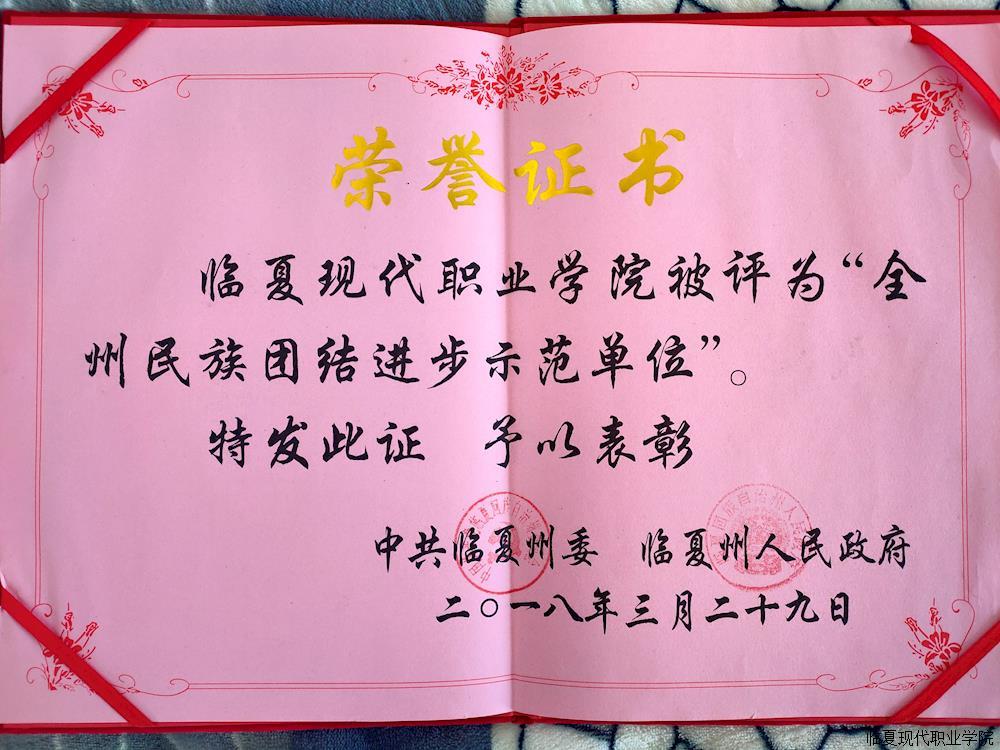 荣誉证书
临夏现代职业学院被评为“全
州民族团结进步示范单位”。
特发此证 予以表彰
中共临夏州委 临夏州人民政府
二〇一八年三月二十九日
临夏现代职业学院